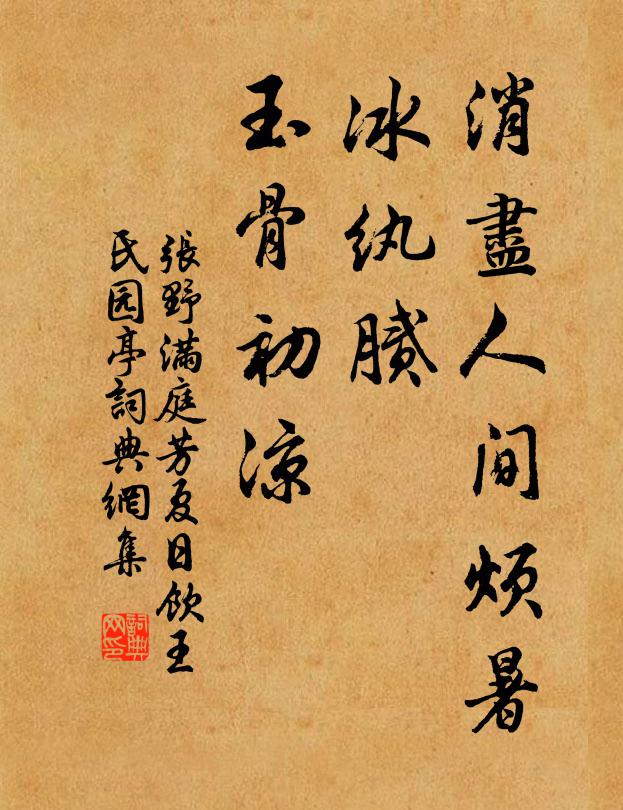 消盡人間煩暑
冰紈膩
玉骨初涼
張野滿庭芳夏日飲王
氏园亭詞典網集
詞典
网印